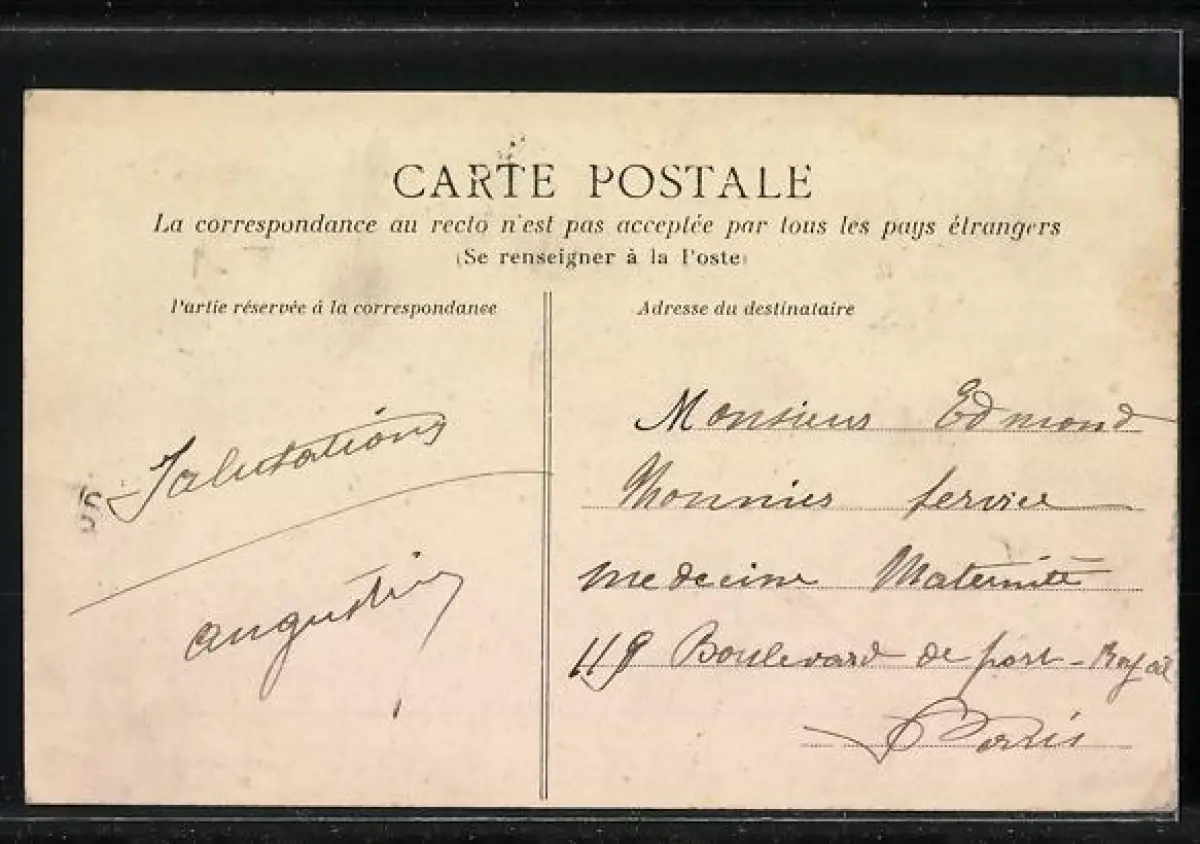 CARTE POSTALE
La correspondance au recto n'est pas acceptée par tous les pays étrangers
(Se renseigner à la Poste)
Partie réservée à la correspondance
Salutations
augustin
Adresse du destinataire
Monsieur Edmond
Monnier Service
medecine Maternité
119 Boulevard de port-Royal
Paris